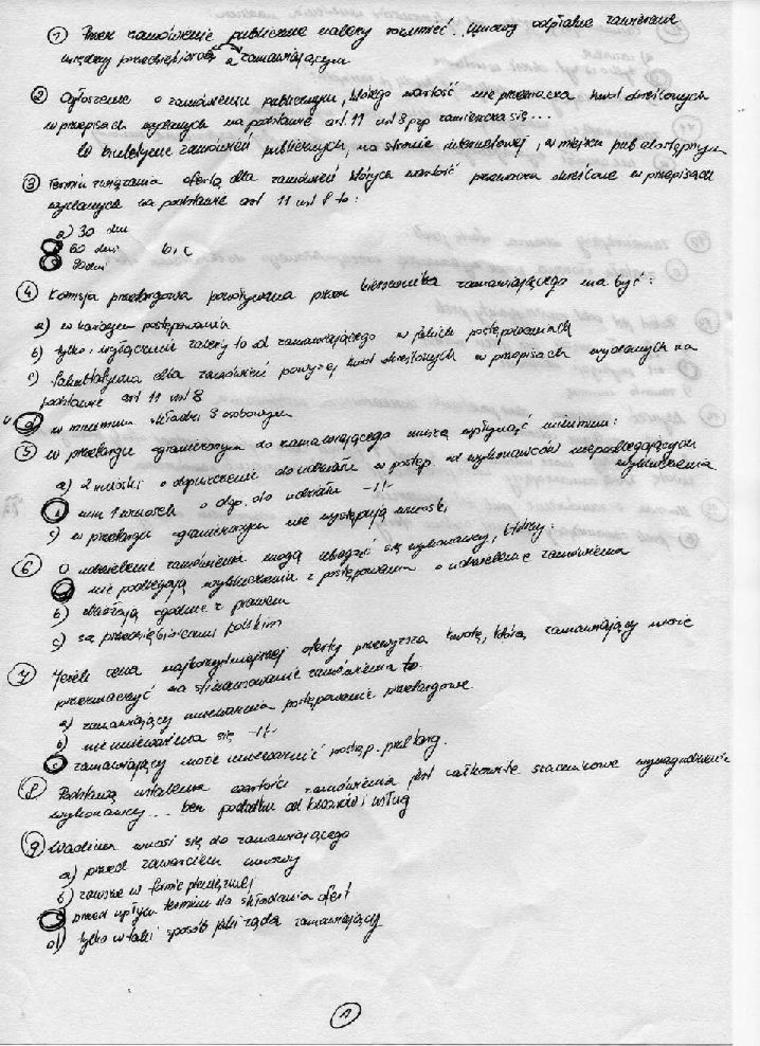 ① Przez zamówienie publiczne należy rozumieć... umowy odpłatne zawierane
między przedsiębiorcą a zamawiającym
② Ogłoszenie o zamówieniu publicznym, którego wartość nie przekracza kwot określonych
w przepisach wydanych na podstawie art. 11 ust 8 pzp zamieszcza się...
W biuletynie zamówień publicznych, na stronie internetowej, w miejscu pub. dostępnym
③ Termin związania ofertą dla zamówień których wartość przekracza określone w przepisach
wydanych na podstawie art 11 ust 8 to:
a) 30 dni
60 dni b, c
90 dni
④ Komisja przetargowa powoływana przez kierownika zamawiającego ma być:
a) w każdym postępowaniu
b) tylko i wyłącznie zależy to od zamawiającego w jakich postępowaniach
c) fakultatywna dla zamówień powyżej kwot określonych w przepisach wydanych na
podstawie art 11 ust 8
d) w minimum składzie 3 osobowym
⑤ W przetargu ograniczonym do zamawiającego muszą wpłynąć minimum:
a) 2 wnioski o dopuszczenie do udziału w postęp. od wykonawców niepodlegających
wykluczenia
min 1 wniosek o dop. do udziału -||-
c) w przetargu ograniczonym nie występują wnioski
⑥ O udzielenie zamówienia mogą ubiegać się wykonawcy, którzy:
nie podlegają wykluczeniu z postępowania o udzielenie zamówienia
b) działają zgodnie z prawem
c) są przedsiębiorcami polskimi
⑦ Jeżeli cena najkorzystniejszej oferty przewyższa kwotę, którą zamawiający może
przeznaczyć na sfinansowanie zamówienia to.
a) zamawiający unieważnia postępowanie przetargowe
b) nie unieważnia się -||-
c zamawiający może unieważnić postęp. przetarg.
⑧ Podstawą ustalenia wartości zamówienia jest całkowite szacunkowe wynagrodzenie
wykonawcy... bez podatku od towarów i usług
⑨ Wadium wnosi się do zamawiającego
a) przed zawarciem umowy
b) zawsze w formie pieniężnej
c przed upływem terminu do składania ofert
d) tylko w taki sposób jaki żąda zamawiający
①